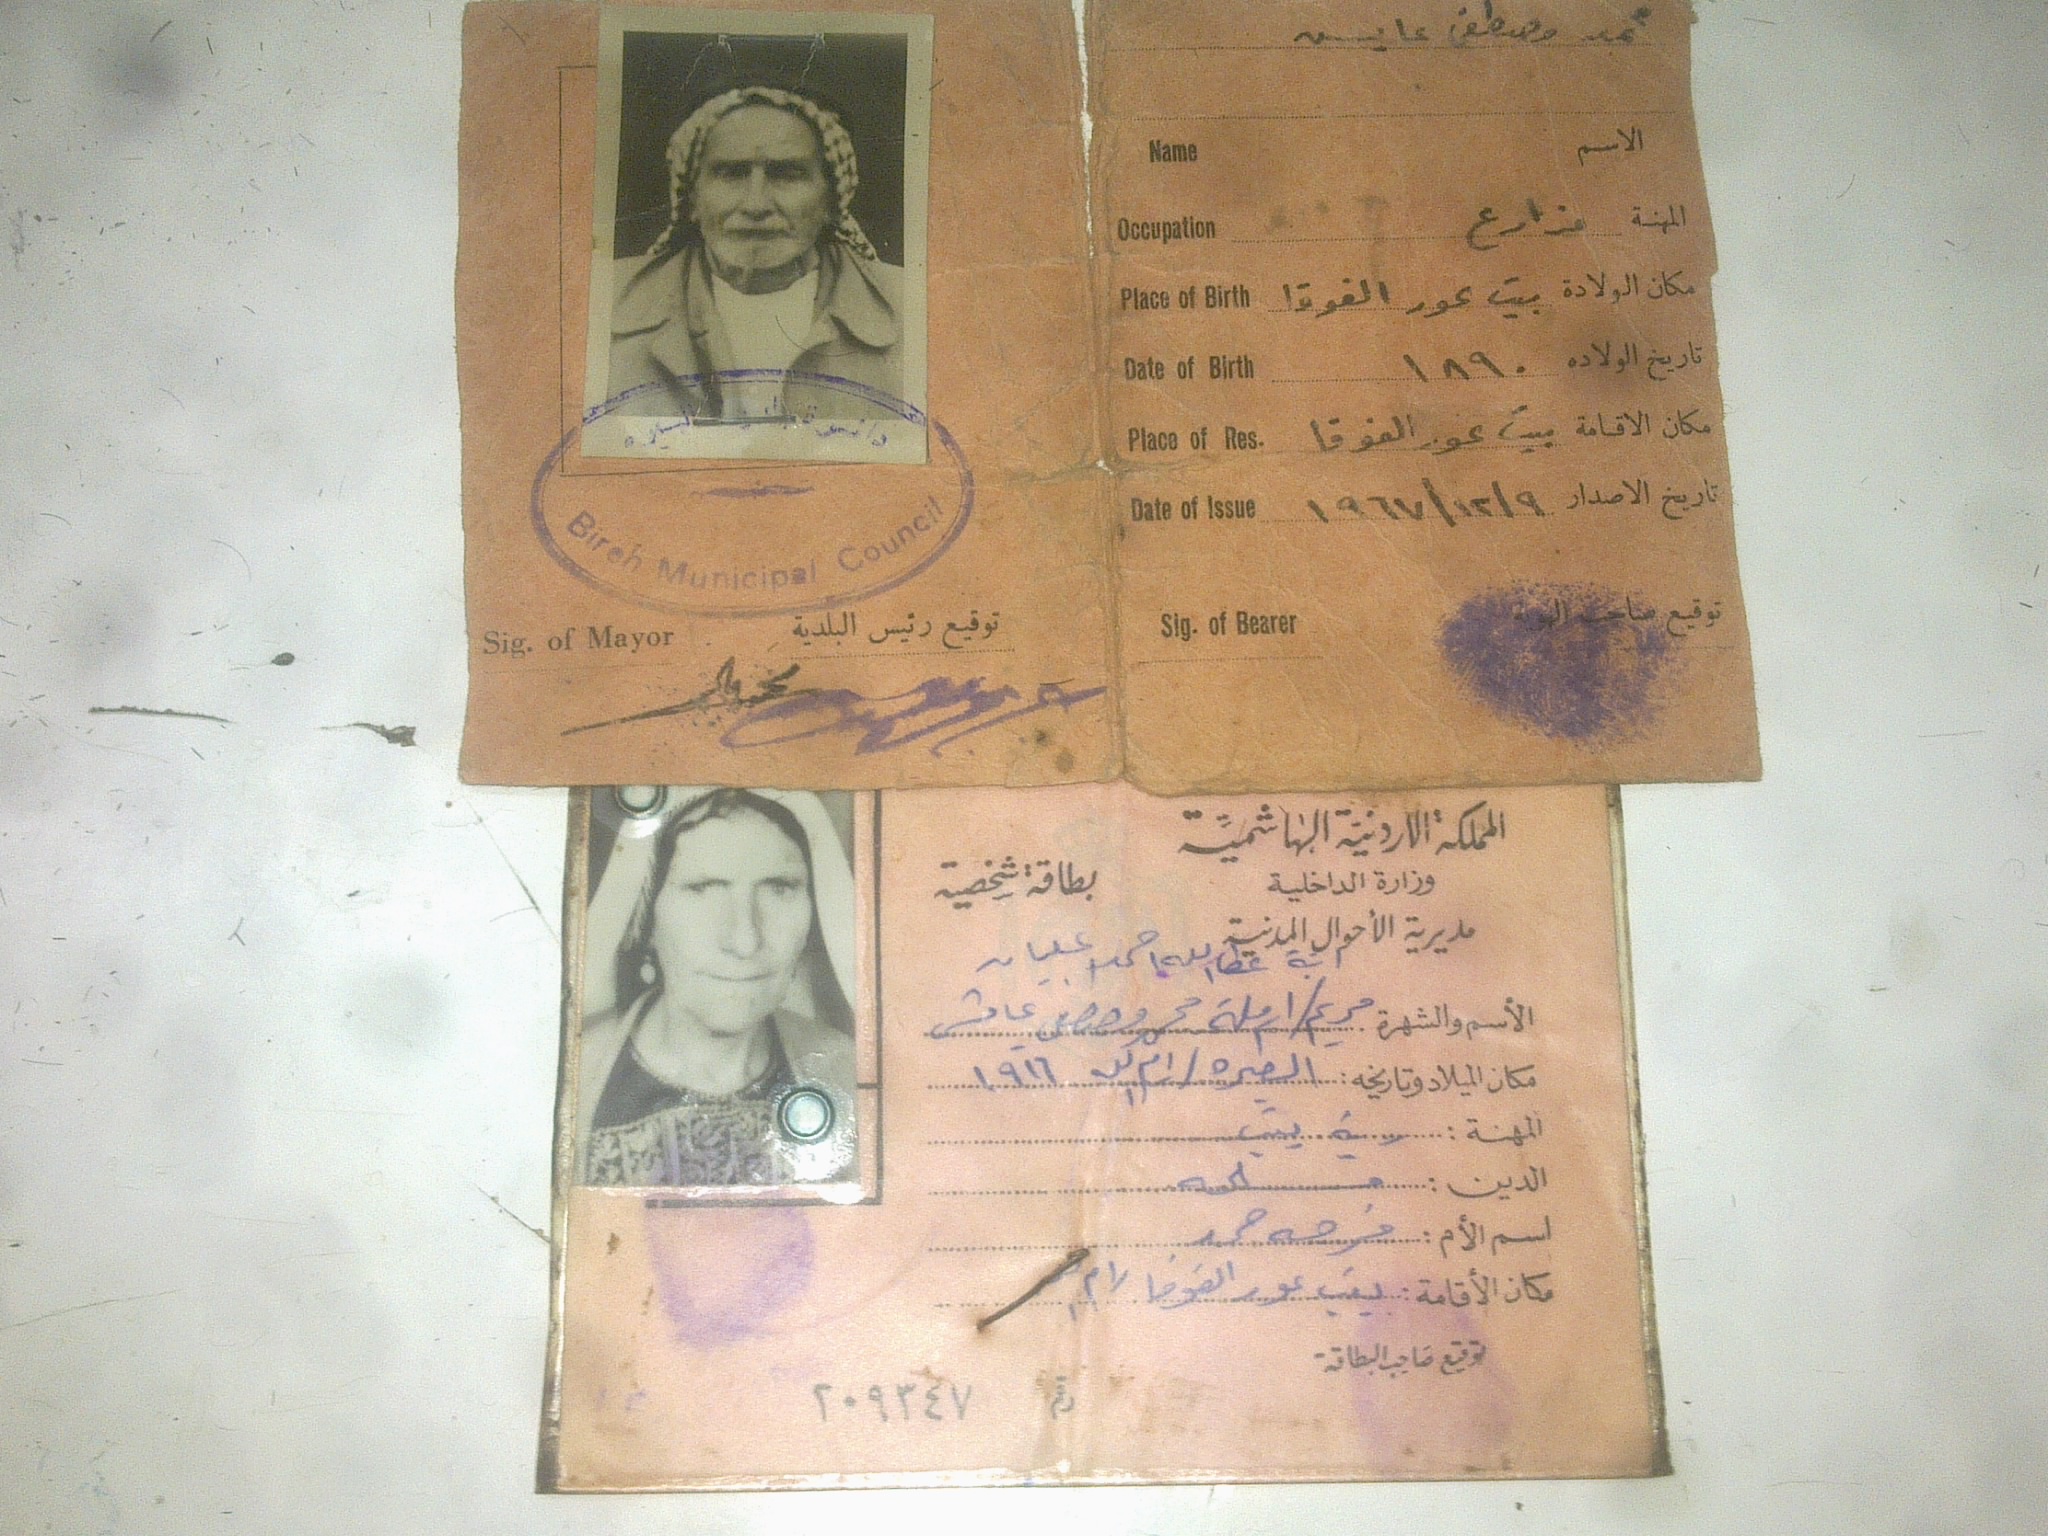 محمد مصطفى عايش
Name الاسم
Occupation مزارع المهنة
Place of Birth بيت عور الفوقا مكان الولادة
Date of Birth ١٨٩٠ تاريخ الولاده
Place of Res. بيت عور الفوقا مكان الاقامة
Date of Issue ١٩٦٧/١٢/٩ تاريخ الاصدار
Sig. of Bearer توقيع صاحب الهوية
Bireh Municipal Council
Sig. of Mayor توقيع رئيس البلدية
المملكة الاردنية الهاشمية
وزارة الداخلية
بطاقة شخصية
مديرية الأحوال المدنية
عطا الله احمد عليان
الأسم والشهرة مريم/ارملة محمد مصطفى عايش
مكان الميلاد وتاريخه: البيره/رام الله ١٩١٦
المهنة: ربة بيت
الدين:
اسم الأم: فرحه حمد
مكان الأقامة: بيت عور الفوقا
توقيع صاحب البطاقة
رقم ٢٠٩٣٤٧